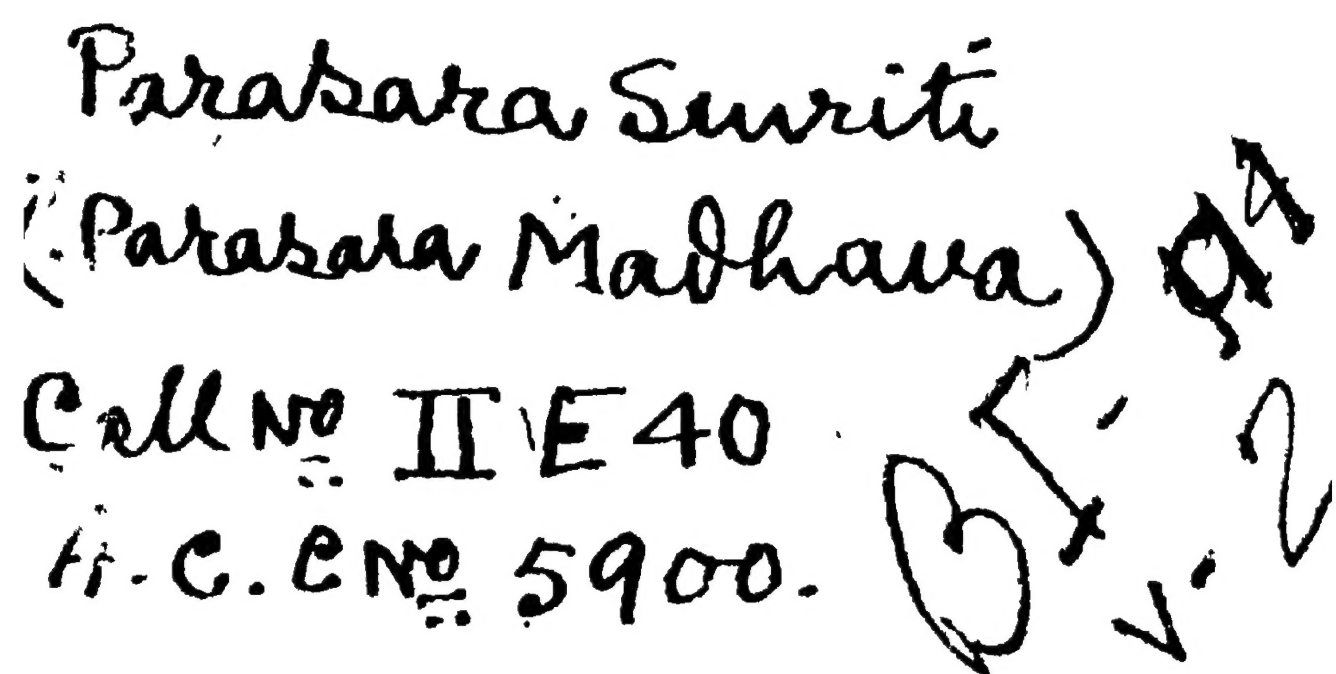 Parasara Smriti
(Parasara Madhava)
Call No II E 40
A.C.C No 5900.
BI-94
V-2